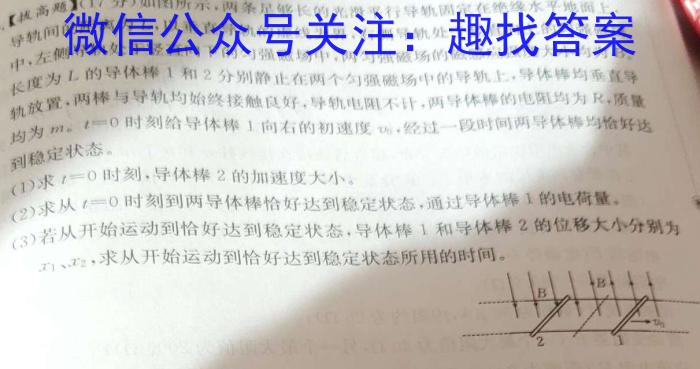 【拔高题】(17分)如图所示,两条足够长的光滑平行导轨固定在绝缘水平地面上,
导轨间
微信公众号关注:趣找答案
中,左侧
长度为 L 的导体棒 1 和 2 分别静止在两个匀强磁场中的导轨上,导体棒均垂直导
轨放置,两棒与导轨均始终接触良好,导轨电阻不计,两导体棒的电阻均为 R,质量
均为 m。t=0 时刻给导体棒 1 向右的初速度 v₀,经过一段时间两导体棒均恰好达
到稳定状态。
(1)求 t=0 时刻,导体棒 2 的加速度大小。
(2)求从 t=0 时刻到两导体棒恰好达到稳定状态,通过导体棒 1 的电荷量。
(3)若从开始运动到恰好达到稳定状态,导体棒 1 和导体棒 2 的位移大小分别为
x₁、x₂,求从开始运动到恰好达到稳定状态所用的时间。
B
B
v₀
2
1